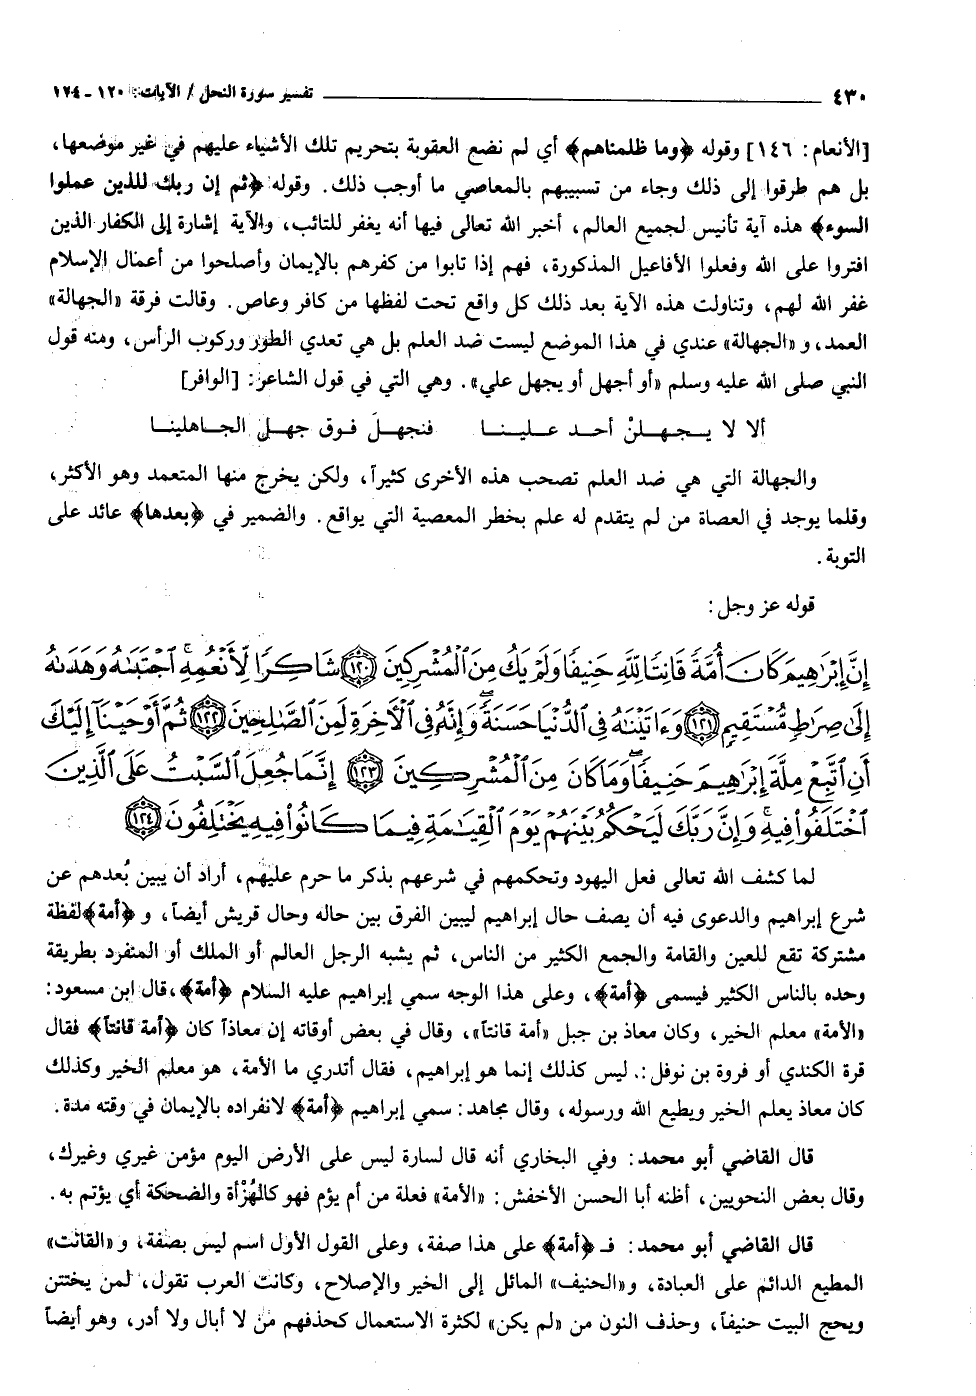 ٤٣٠ ــــــــــ تفسير سورة النحل / الآيات: ١٢٠ ـ ١٢٤
[الأنعام: ١٤٦] وقوله ﴿وما ظلمناهم﴾ أي لم نضع العقوبة بتحريم تلك الأشياء عليهم في غير موضعها،
بل هم طرقوا إلى ذلك وجاء من تسبيبهم بالمعاصي ما أوجب ذلك. وقوله ﴿ثم إن ربك للذين عملوا
السوء﴾ هذه آية تأنيس لجميع العالم، أخبر الله تعالى فيها أنه يغفر للتائب، والآية إشارة إلى الكفار الذين
افتروا على الله وفعلوا الأفاعيل المذكورة، فهم إذا تابوا من كفرهم بالإيمان وأصلحوا من أعمال الإسلام
غفر الله لهم، وتناولت هذه الآية بعد ذلك كل واقع تحت لفظها من كافر وعاص. وقالت فرقة «الجهالة»
العمد، و «الجهالة» عندي في هذا الموضع ليست ضد العلم بل هي تعدي الطور وركوب الرأس، ومنه قول
النبي صلى الله عليه وسلم «أو أجهل أو يجهل علي». وهي التي في قول الشاعر: [الوافر]
ألا لا يـجـهـلنْ أحـد عـلـيـنـا فنجهلَ فـوق جهـل الجـاهلينـا
والجهالة التي هي ضد العلم تصحب هذه الأخرى كثيراً، ولكن يخرج منها المتعمد وهو الأكثر،
وقلما يوجد في العصاة من لم يتقدم له علم بخطر المعصية التي يواقع. والضمير في ﴿بعدها﴾ عائد على
التوبة.
قوله عز وجل:
إِنَّ إِبْرَٰهِيمَ كَانَ أُمَّةً قَانِتًا لِّلَّهِ حَنِيفًا وَلَمْ يَكُ مِنَ ٱلْمُشْرِكِينَ ﴿١٢٠﴾ شَاكِرًا لِّأَنْعُمِهِ ۚ ٱجْتَبَىٰهُ وَهَدَىٰهُ
إِلَىٰ صِرَٰطٍ مُّسْتَقِيمٍ ﴿١٢١﴾ وَءَاتَيْنَٰهُ فِى ٱلدُّنْيَا حَسَنَةً ۖ وَإِنَّهُۥ فِى ٱلْءَاخِرَةِ لَمِنَ ٱلصَّٰلِحِينَ ﴿١٢٢﴾ ثُمَّ أَوْحَيْنَآ إِلَيْكَ
أَنِ ٱتَّبِعْ مِلَّةَ إِبْرَٰهِيمَ حَنِيفًا ۖ وَمَا كَانَ مِنَ ٱلْمُشْرِكِينَ ﴿١٢٣﴾ إِنَّمَا جُعِلَ ٱلسَّبْتُ عَلَى ٱلَّذِينَ
ٱخْتَلَفُوا۟ فِيهِ ۚ وَإِنَّ رَبَّكَ لَيَحْكُمُ بَيْنَهُمْ يَوْمَ ٱلْقِيَٰمَةِ فِيمَا كَانُوا۟ فِيهِ يَخْتَلِفُونَ ﴿١٢٤﴾
لما كشف الله تعالى فعل اليهود وتحكمهم في شرعهم بذكر ما حرم عليهم، أراد أن يبين بُعدهم عن
شرع إبراهيم والدعوى فيه أن يصف حال إبراهيم ليبين الفرق بين حاله وحال قريش أيضاً، و ﴿أمة﴾ لفظة
مشتركة تقع للعين والقامة والجمع الكثير من الناس، ثم يشبه الرجل العالم أو الملك أو المنفرد بطريقة
وحده بالناس الكثير فيسمى ﴿أمة﴾، وعلى هذا الوجه سمي إبراهيم عليه السلام ﴿أمة﴾، قال ابن مسعود:
«الأمة» معلم الخير، وكان معاذ بن جبل «أمة قانتاً»، وقال في بعض أوقاته إن معاذاً كان ﴿أمة قانتاً﴾ فقال
قرة الكندي أو فروة بن نوفل:. ليس كذلك إنما هو إبراهيم، فقال أتدري ما الأمة، هو معلم الخير وكذلك
كان معاذ يعلم الخير ويطيع الله ورسوله، وقال مجاهد: سمي إبراهيم ﴿أمة﴾ لانفراده بالإيمان في وقته مدة.
قال القاضي أبو محمد: وفي البخاري أنه قال لسارة ليس على الأرض اليوم مؤمن غيري وغيرك،
وقال بعض النحويين، أظنه أبا الحسن الأخفش: «الأمة» فعلة من أم يؤم فهو كالهُزْأة والضحكة أي يؤتم به.
قال القاضي أبو محمد: فـ ﴿أمة﴾ على هذا صفة، وعلى القول الأول اسم ليس بصفة، و «القانت»
المطيع الدائم على العبادة، و «الحنيف» المائل إلى الخير والإصلاح، وكانت العرب تقول، لمن يختتن
ويحج البيت حنيفاً، وحذف النون من «لم يكن» لكثرة الاستعمال كحذفهم من لا أبال ولا أدر، وهو أيضاً